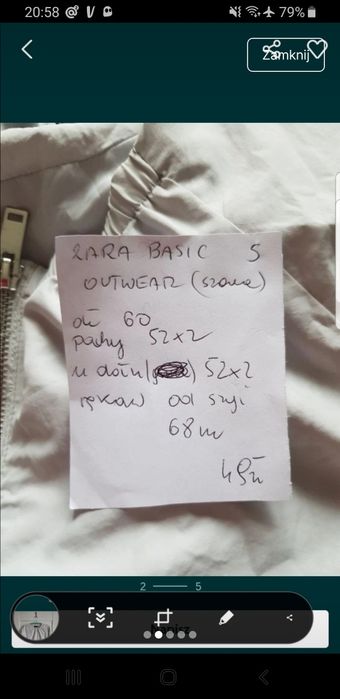 20:58
79%
Zamknij
ZARA BASIC S
OUTWEAR (szara)
dł 60
pachy 52x2
u dołu 52x2
rękaw od szyi
68
2 5